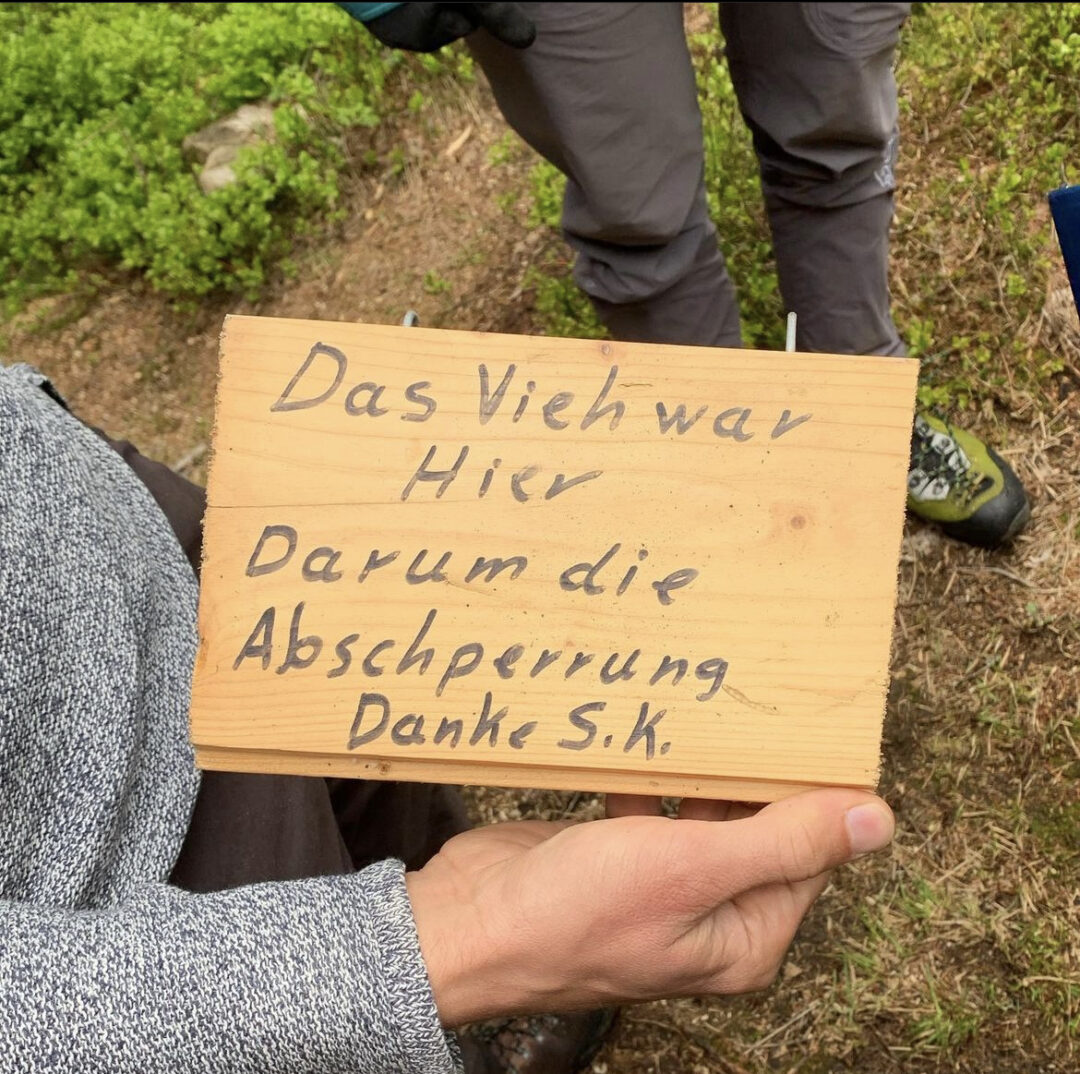 Das Vieh war
Hier
Darum die
Abschperrung
Danke S.K.